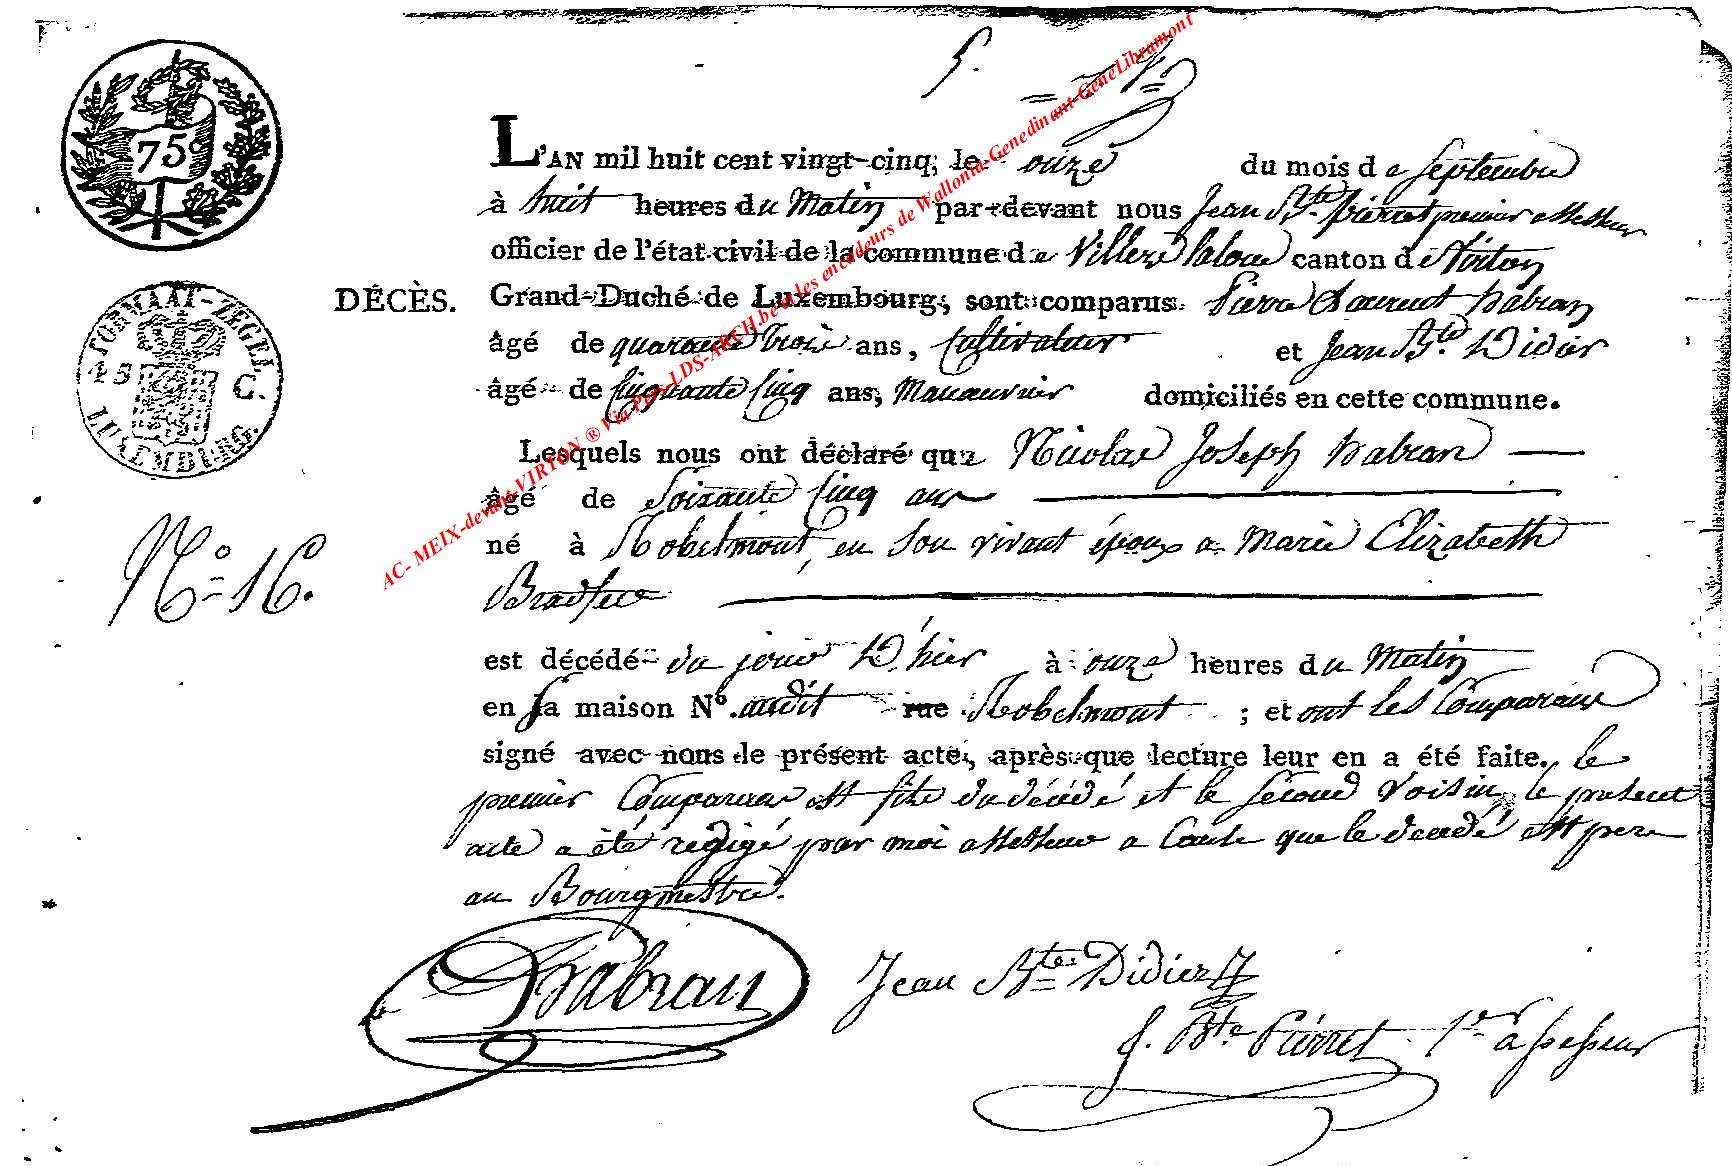 5.
75 c
L'AN mil huit cent vingt-cinq, le onze du mois de Septembre
à huit heures du Matin par-devant nous Jean Bte. pierret premier assesseur
officier de l'état civil de la commune de Villers laloue canton de Virton
DÉCÈS. Grand-Duché de Luxembourg, sont comparus Pierre Laurent habran
âgé de quarante trois ans, Cultivateur et Jean Bte. Didier
âgé de Cinquante Cinq ans, Manœuvrier domiciliés en cette commune.
FORMAAT-ZEGEL
C.
LUXEMBURG.
Lesquels nous ont déclaré que Nicolas Joseph habran
âgé de Soixante Cinq ans
né à Robelmont, en Son vivant époux a Marie Elizabeth
No 16.
est décédé du jour D'hier à onze heures du Matin
en Sa maison No. audit rue Robelmont ; et ont les Comparans
signé avec nous le présent acte, après que lecture leur en a été faite. le
premier Comparant est fils du décédé et le Second Voisin, le present
acte a été rédigé par moi assesseur a Cause que le decedé est pere
au Bourgmestre.
Habran
Jean Bte Didier
J. Bte Pierret 1er assesseur
AC- MEIX-devant-VIRTON ® Via PDS-LDS-ARCH.be et les encodeurs de Wallonia-Genedinant-GeneLibramont